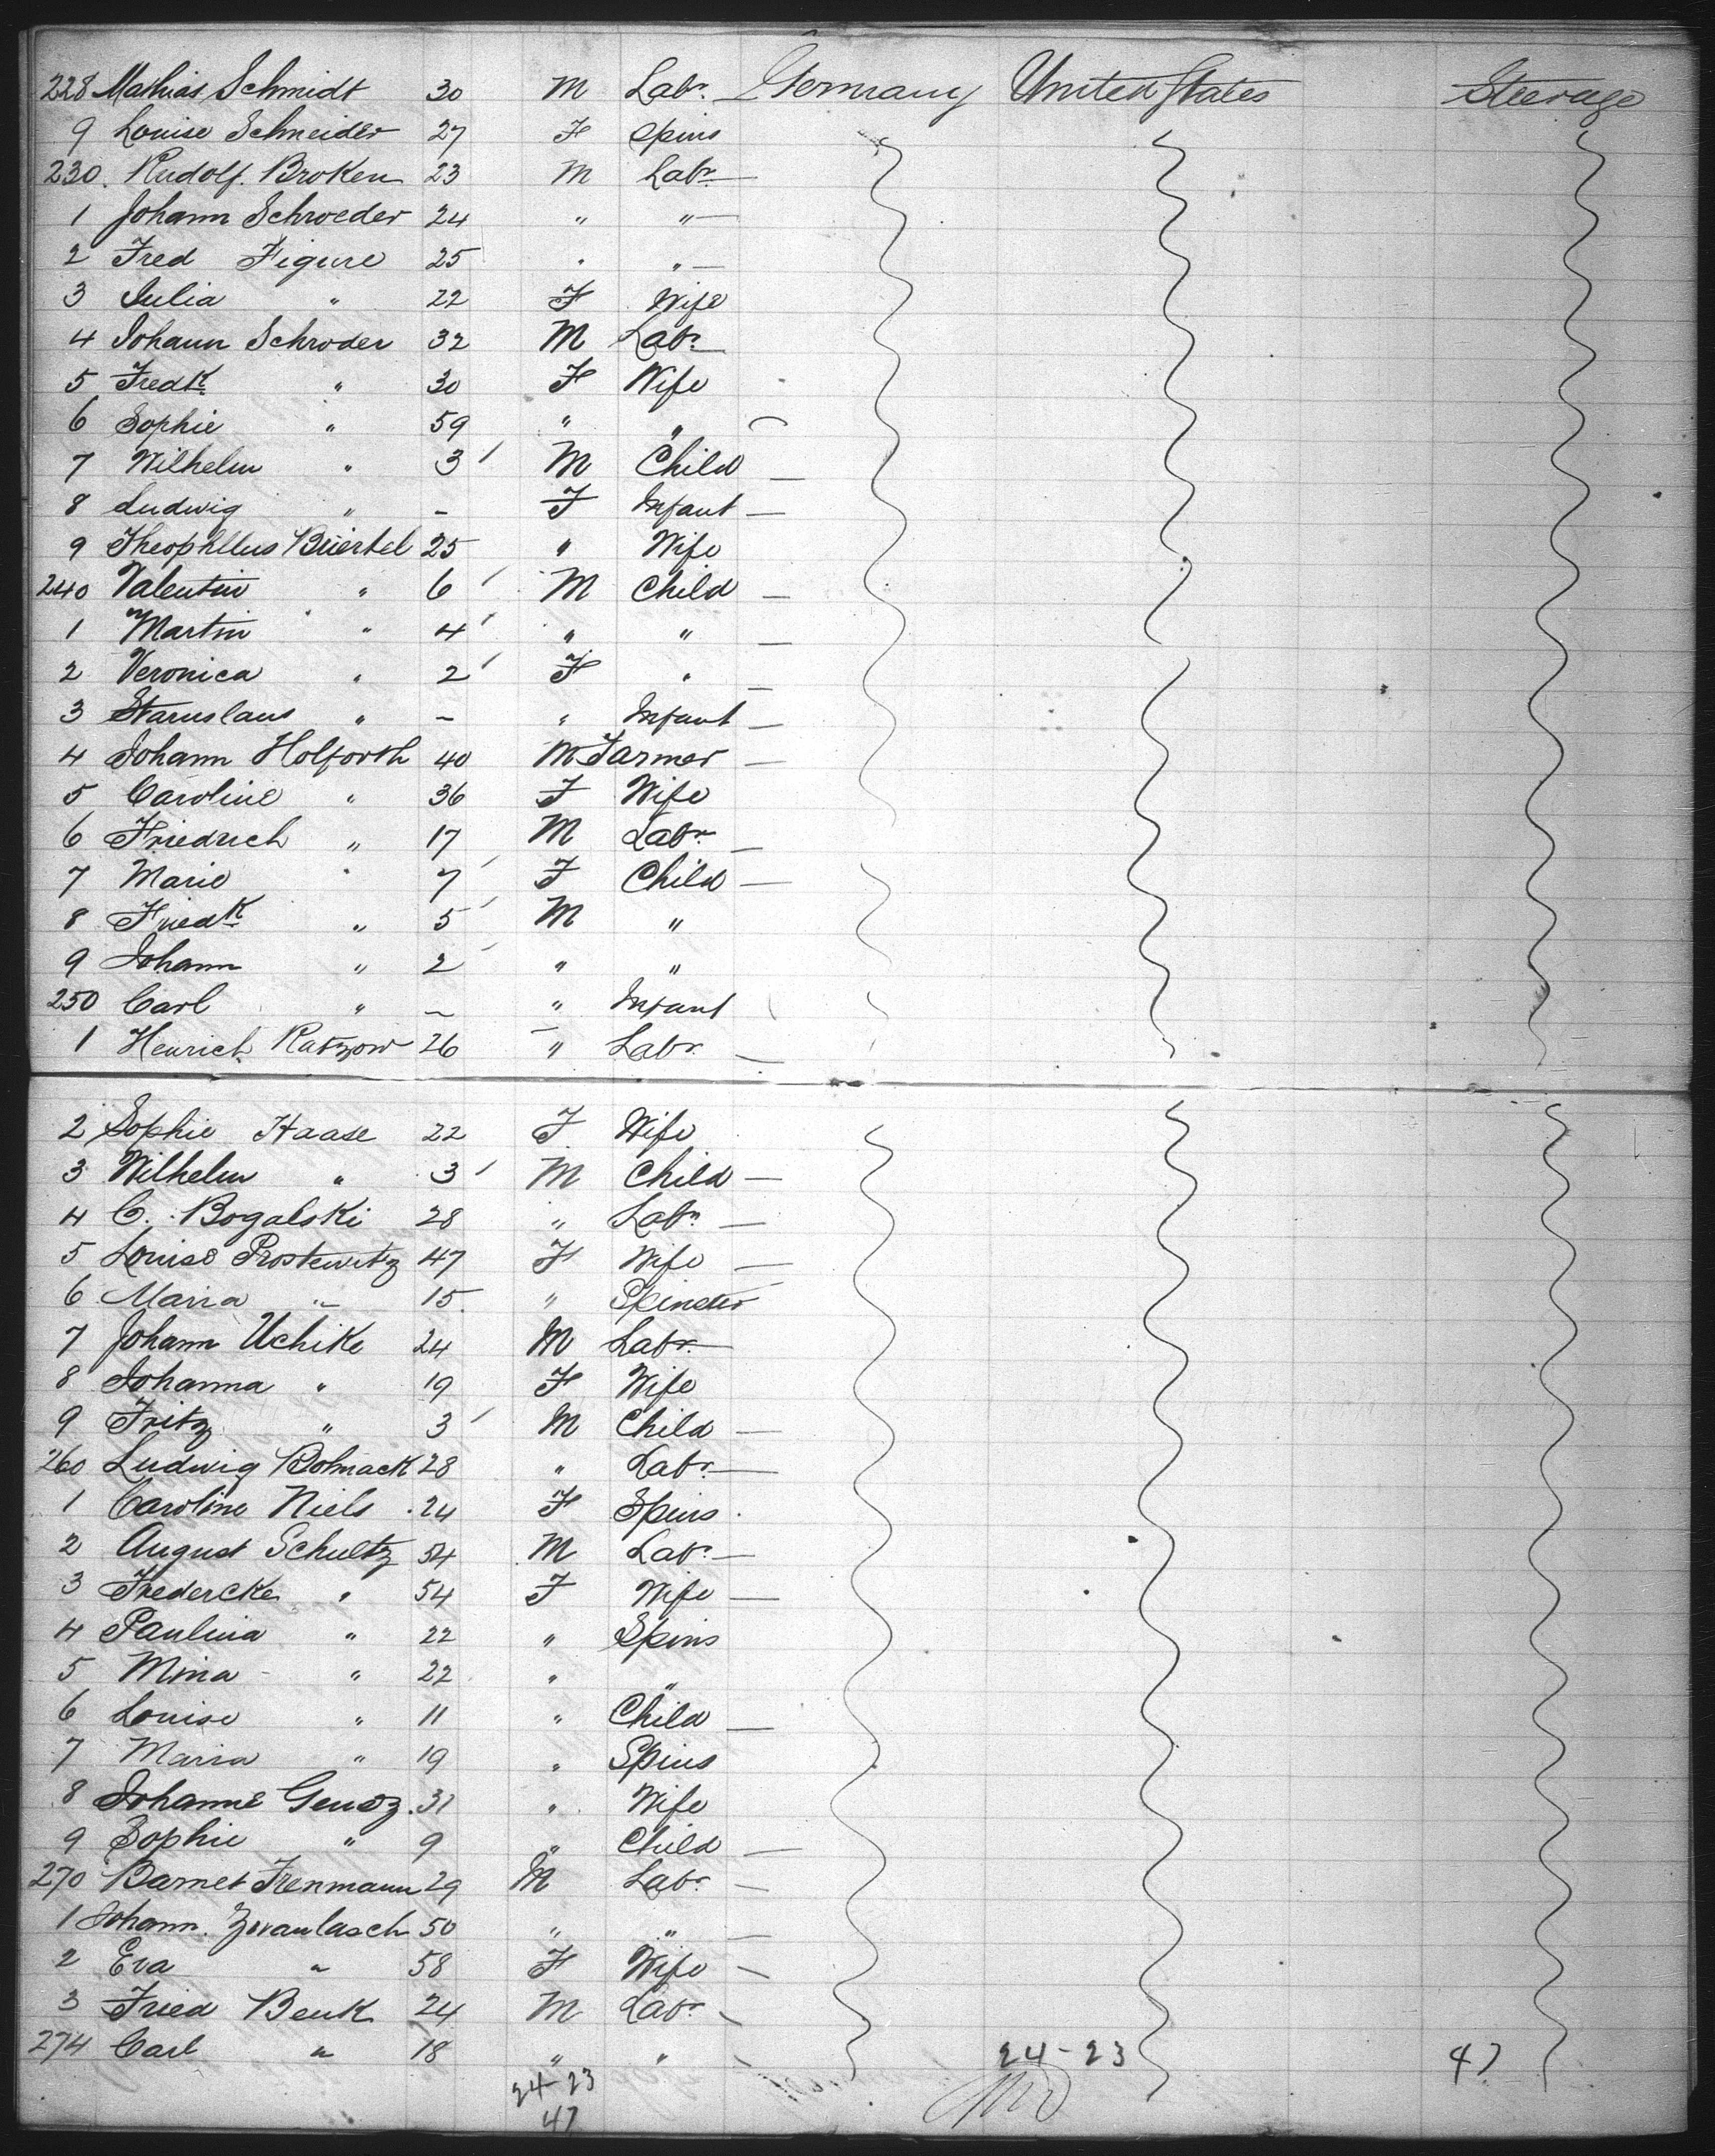 228 Mathias Schmidt 30 M Labr. Germany United States Steerage
9 Louise Schneider 27 F Spins
230. Rudolf. Broken 23 M Labr.
1 Johann Schroeder 24 " "
2 Fred Figure 25 " "
3 Julia " 22 F Wife
4 Johann Schroder 32 M Labr.
5 Fredk " 30 F Wife
6 Sophie " 59 " "
7 Wilhelm " 3 M Child
8 Ludwig " - F Infant
9 Theophllus Büertel 25 " Wife
240 Valentin " 6 M Child
1 Martin " 4 " "
2 Veronica " 2 F "
3 Stanislaus " - " Infant
4 Johann Holforth 40 M Farmer
5 Caroline " 36 F Wife
6 Friedrich " 17 M Labr.
7 Marie " 7 F Child
8 Friedk " 5 M "
9 Johann " 2 " "
250 Carl " - " Infant
1 Henrich Ratzow 26 " Labr.
2 Sophie Haase 22 F Wife
3 Wilhelm " 3 M Child
4 C. Bogalski 28 " Labr.
5 Louise Prostewitz 47 F Wife
6 Maria " 15 " Spinster
7 Johann Uchike 24 M Labr.
8 Johanna " 19 F Wife
9 Fritz " 3 M Child
260 Ludwig Bolnack 28 " Labr.
1 Caroline Niels 24 F Spins.
2 August Schultz 54 M Labr.
3 Fredercke " 54 F Wife
4 Paulina " 22 " Spins
5 Mina " 22 " "
6 Louise " 11 " Child
7 Maria " 19 " Spins
8 Johanne 31 " Wife
9 Sophie " 9 " Child
270 Barnet Frenmann 29 M Labr.
1 Johann. 50 " "
2 Eva " 58 F Wife
3 Fried Benk 24 M Labr.
274 Carl " 18 " "
24-23 24-23 47
47